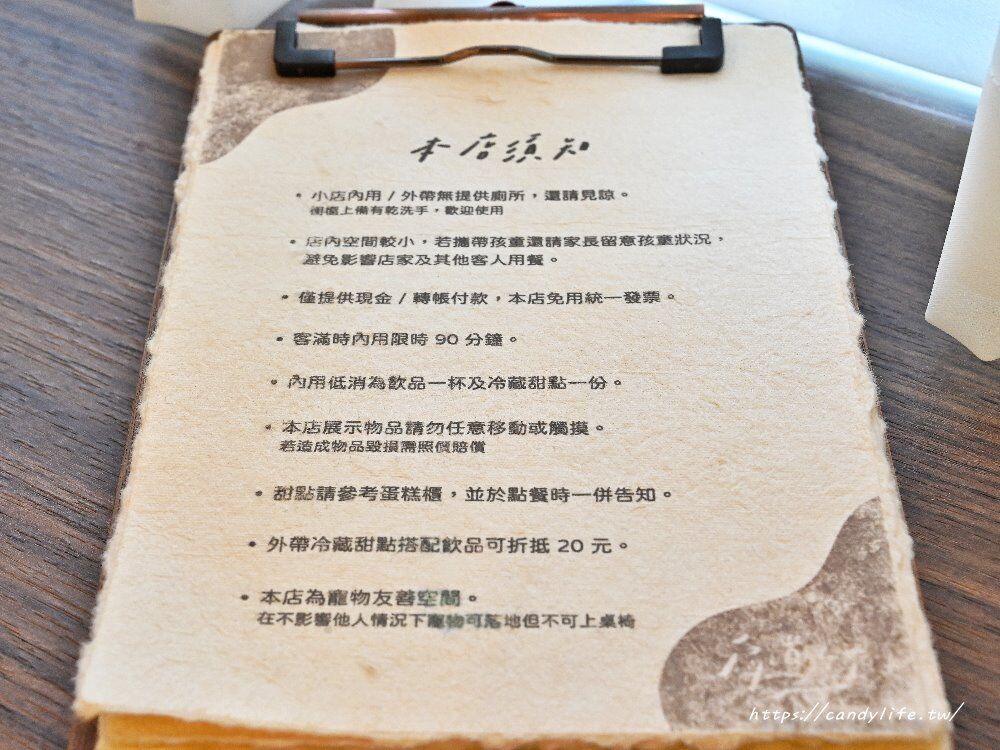 本店須知
• 小店內用 / 外帶無提供廁所，還請見諒。
櫥檯上備有乾洗手，歡迎使用
• 店內空間較小，若攜帶孩童還請家長留意孩童狀況，
避免影響店家及其他客人用餐。
• 僅提供現金 / 轉帳付款，本店免用統一發票。
• 客滿時內用限時 90 分鐘。
• 內用低消為飲品一杯及冷藏甜點一份。
• 本店展示物品請勿任意移動或觸摸。
若造成物品毀損需照價賠償
• 甜點請參考蛋糕櫃，並於點餐時一併告知。
• 外帶冷藏甜點搭配飲品可折抵 20 元。
• 本店為寵物友善空間。
在不影響他人情況下寵物可落地但不可上桌椅
https://candylife.tw/